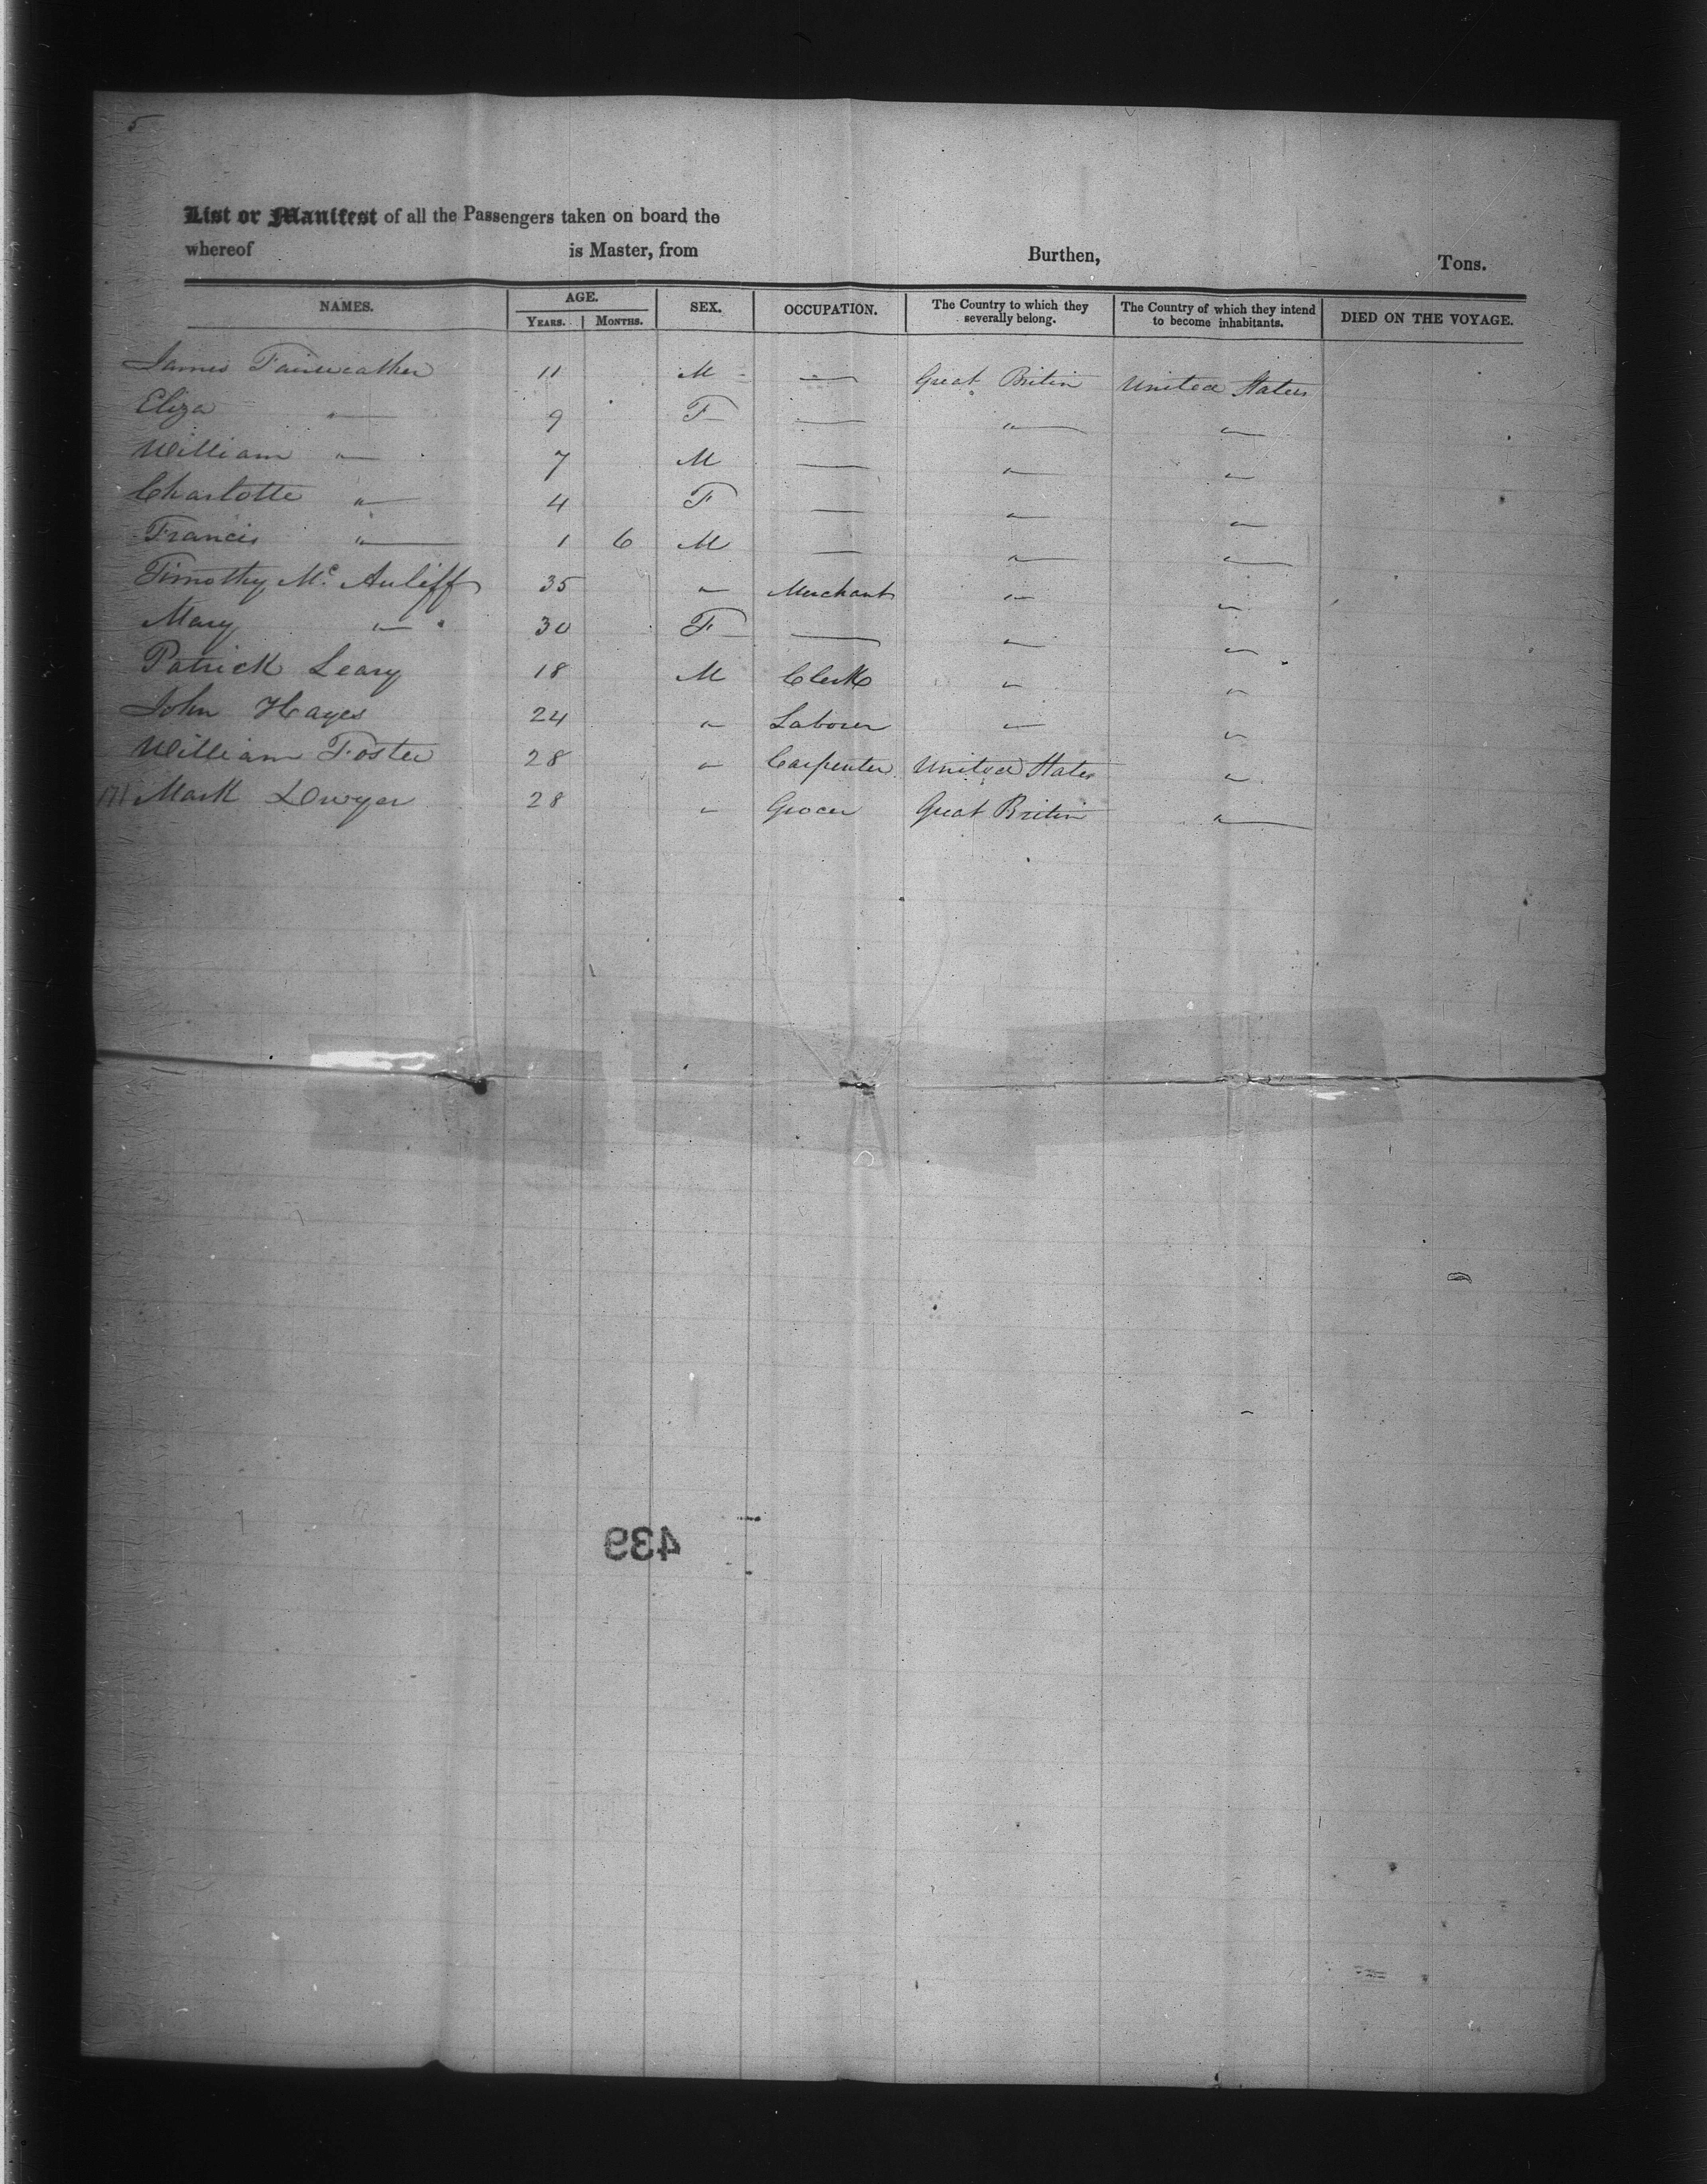 5
List or Manifest of all the Passengers taken on board the
whereof is Master, from Burthen, Tons.
NAMES. AGE. SEX. OCCUPATION. The Country to which they severally belong. The Country of which they intend to become inhabitants. DIED ON THE VOYAGE.
YEARS. MONTHS.
James Fairweather 11 M — Great Britin United States
Eliza " 9 F — " "
William " 7 M — " "
Charlotte " 4 F — " "
Francis " 1 6 M — " "
Timothy Mc Auliff 35 " Merchant " "
Mary " 30 F — " "
Patrick Leary 18 M Clerk " "
John Hayes 24 " Laborer " "
William Foster 28 " Carpenter United States "
171 Mark Dwyer 28 " Grocer Great Britin "
439